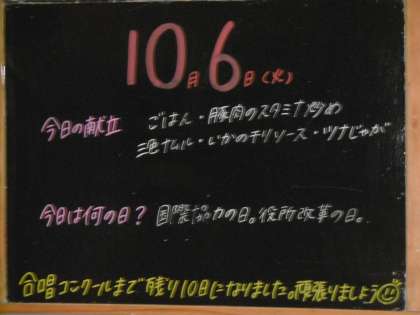 10月6日(火)
今日の献立 ごはん・豚肉のスタミナ炒め
三色ナムル・いかのチリソース・ツナじゃが
今日は何の日? 国際協力の日。役所改革の日。
合唱コンクールまで残り10日になりました。頑張りましょう